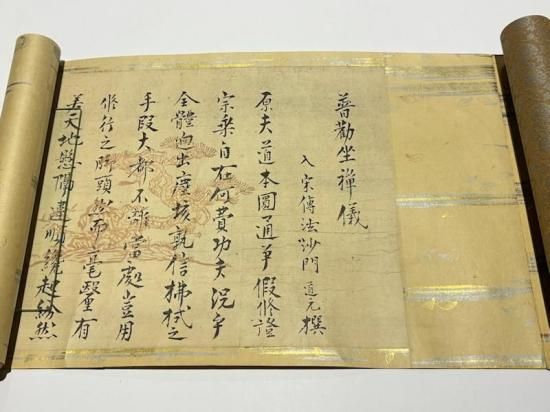 普勸坐禪儀
入宋傳法沙門 道元 撰
原夫道本圓通爭假修證
宗乘自在何費功夫況乎
全體迥出塵埃孰信拂拭之
手段大都不離當處豈用
修行之脚頭然而毫釐有
差天地懸隔違順纔起紛然